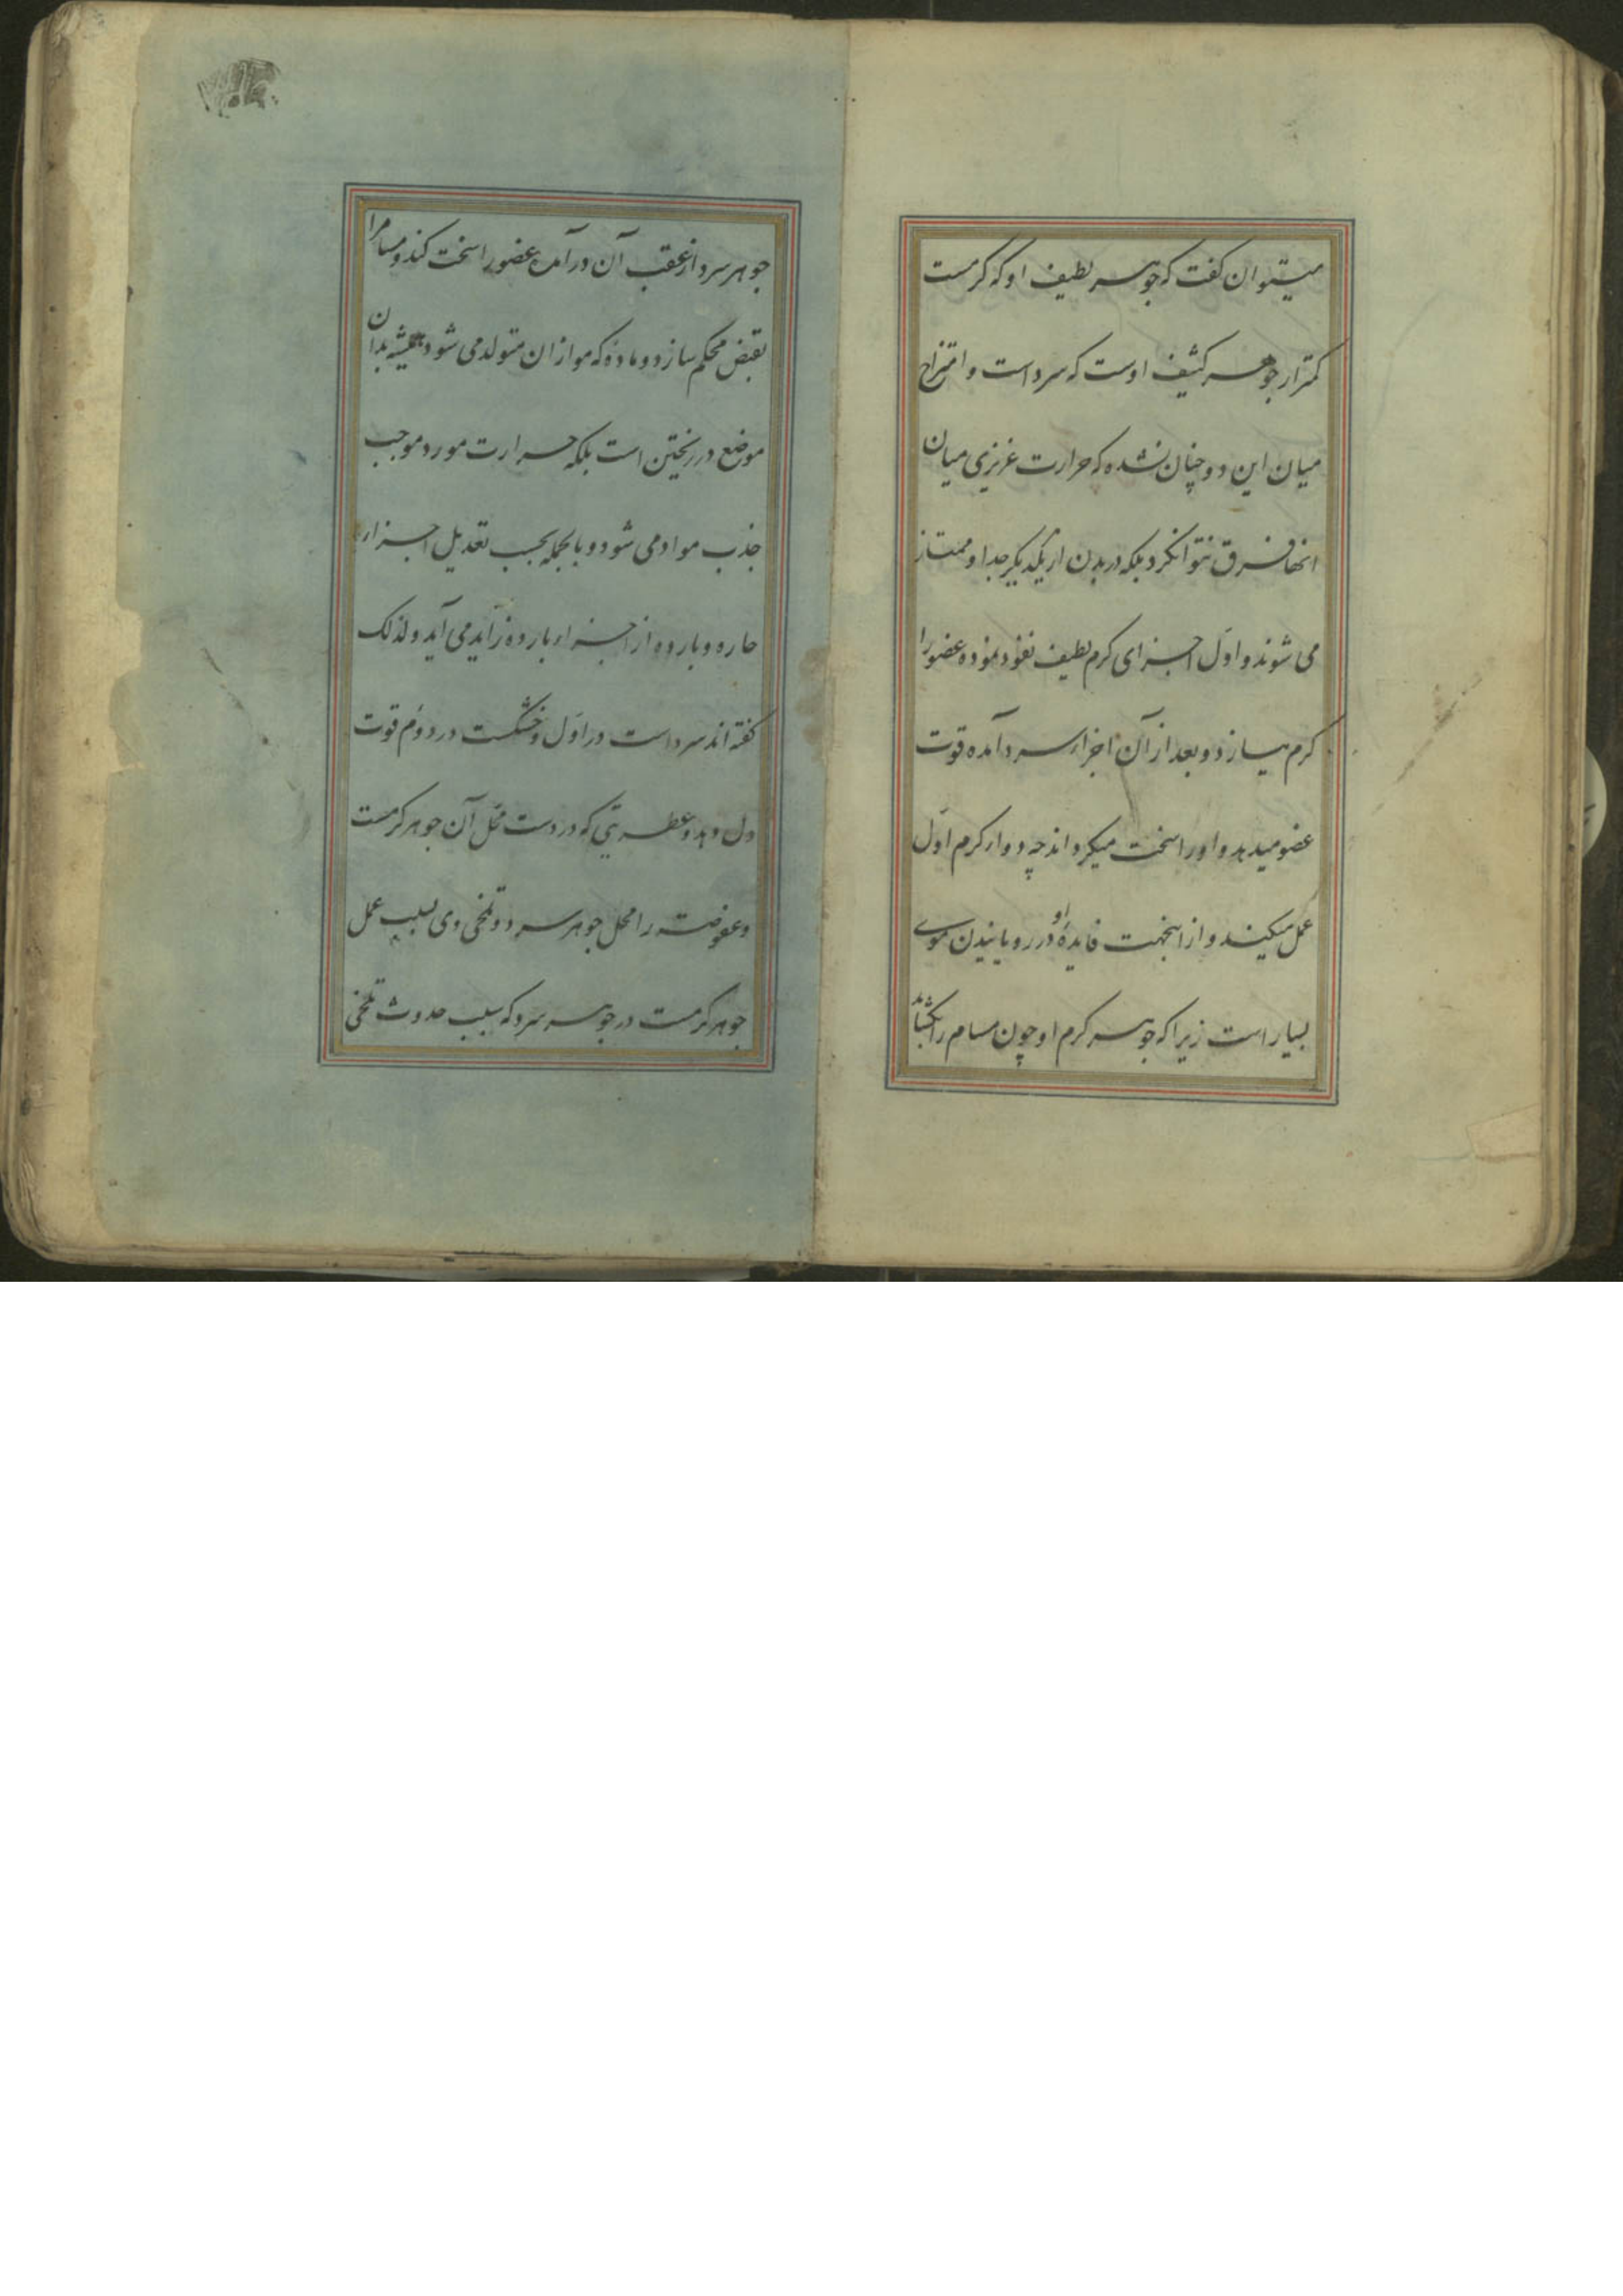 میتوان کفت که جوهر لطیف او که کرمست
کمتر از جوهر کثیف اوست که سرد است و امتزاج
میان این دو چنان نشده که حرارت غریزی میان
انها فرق نتوانکرد بلکه در بدن از یکدیکر جدا و ممتاز
می شوند و اوّل اجزای کرم لطیف نفوذ نموده عضو را
کرم میسازد و بعد از آن اجزاء سرد آمده قوت
عضو میدهد و او را سخت میکرداند چه دواء کرم اوّل
عمل میکند و از اینجهت فایدهٔ او در رویانیدن موی
بسیار است زیرا که جوهر کرم او چون مسام را بکشاند
جوهر سرد از عقب آن در آمده عضو را سخت کند و مسام را
بقبض محکم سازد و مادهٔ که مو از ان متولد می شود همیشه بدان
موضع در ریختن است بلکه حرارت مورد موجب
جذب مواد می شود و بالجمله بحسب تعدیل اجزاء
حاره و بارده از اجزاء بارده زاید می آید و لذلک
کفته اند سرد است در اوّل و خشکست در دوّم قوت
دل دهد و عطریتی که در دست محل آن جوهر کرمست
و عفوصت را محل جوهر سرد و تلخی وی بسبب عمل
جوهر کرمست در جوهر سرد که سبب حدوث تلخی